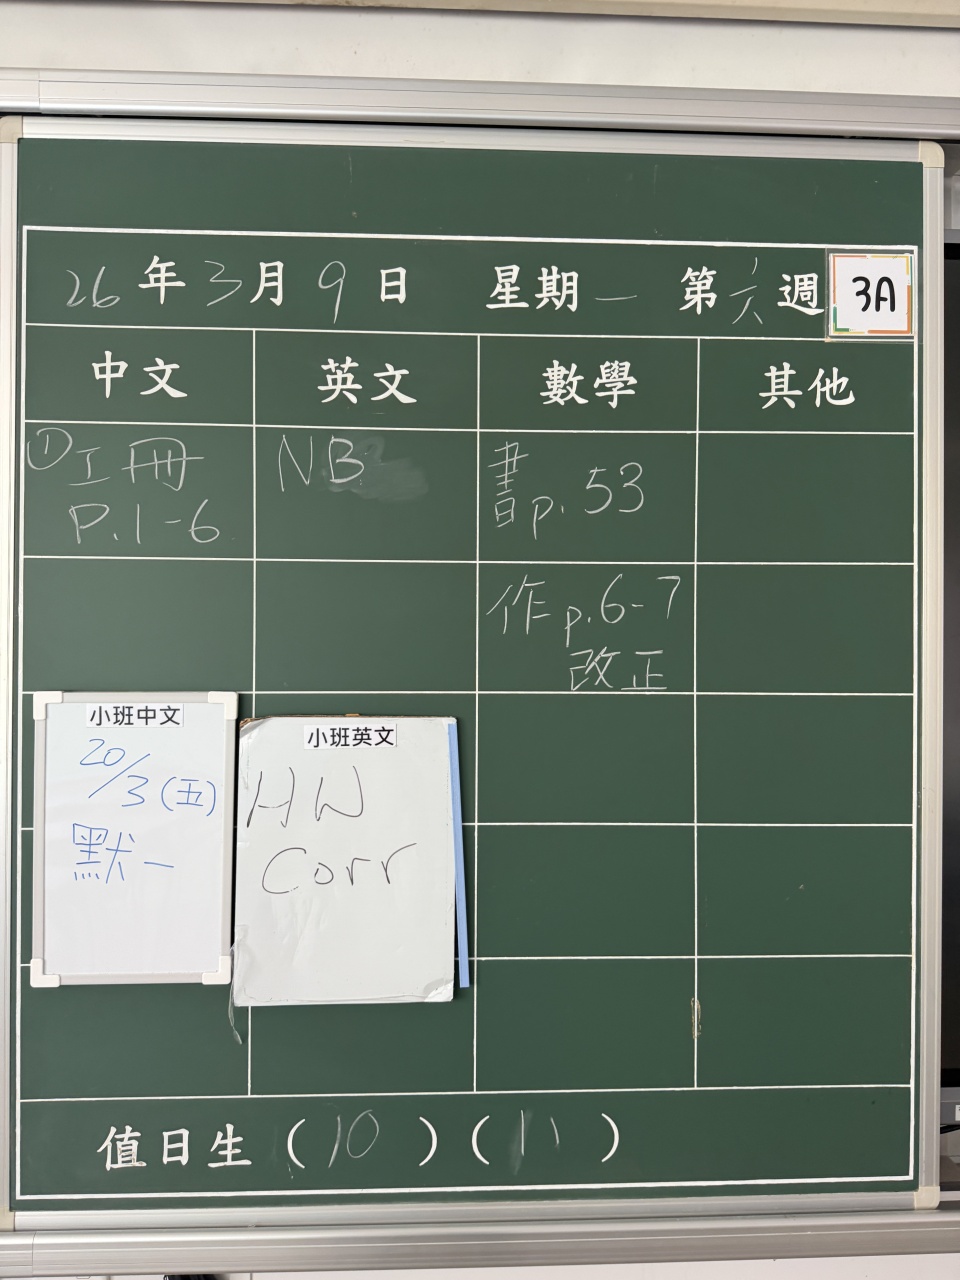 26年3月9日 星期一 第六週 3A
中文 英文 數學 其他
①工冊 NB 書p.53
P.1-6
作p.6-7
改正
小班中文
20/3(五)
默一
小班英文
HW
Corr
值日生(10)(11)